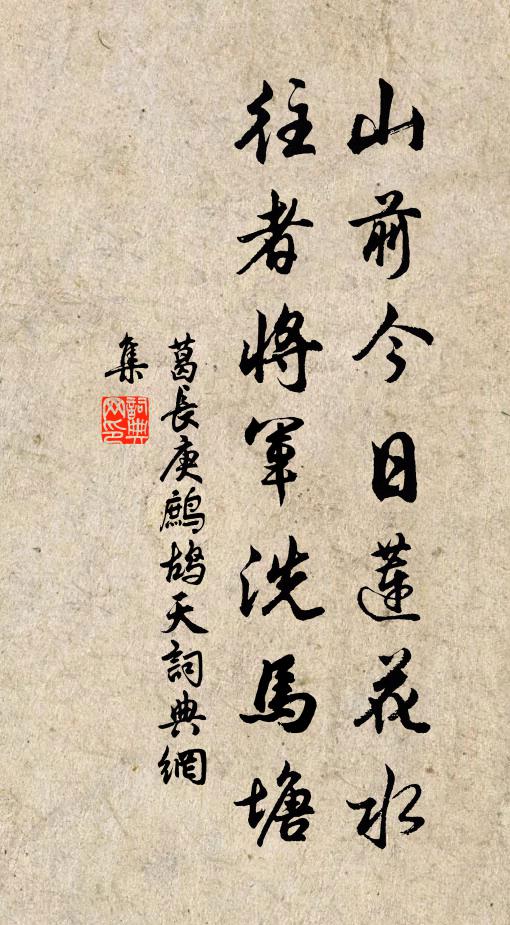 山前今日蓮花水
往者將軍洗馬塘
葛長庚鷓鴣天詞典網
集
詞典網印